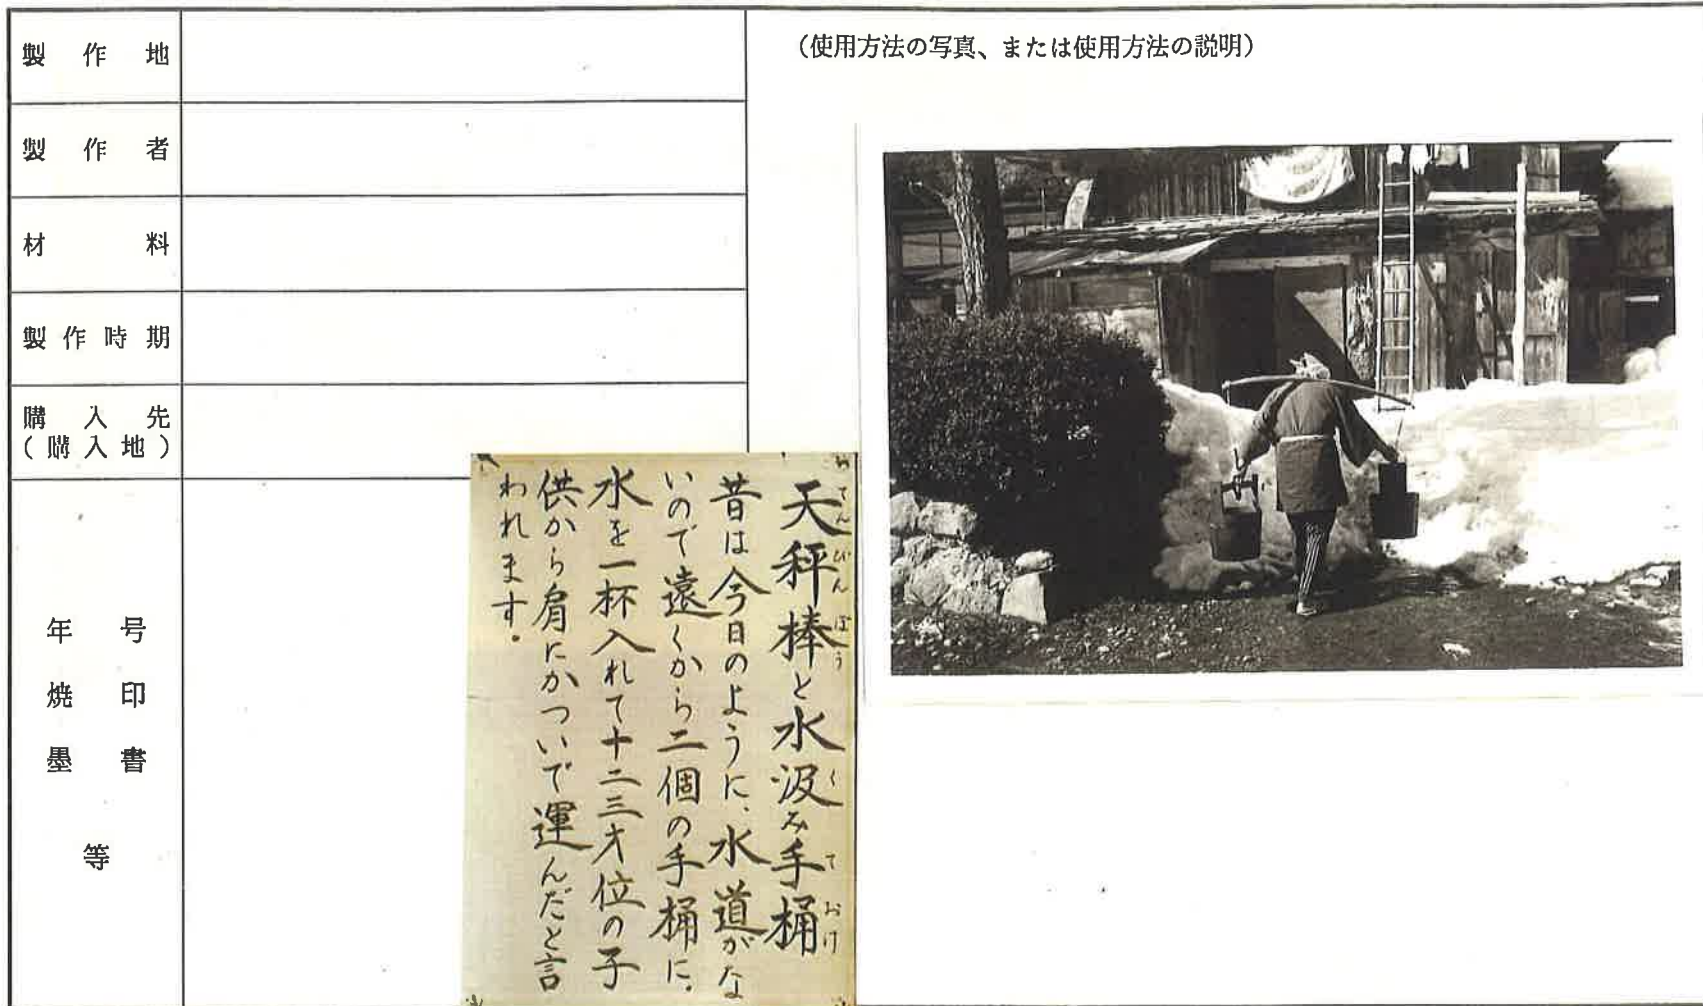 製作地
製作者
材料
製作時期
購入先
(購入地)
年号
焼印
墨書
等
(使用方法の写真、または使用方法の説明)
天秤棒と水汲み手桶
てんびんぼう く て おけ
昔は今日のように、水道がな
いので遠くから二個の手桶に、
水を一杯入れて十二三才位の子
供から肩にかついで運んだと言
われます。